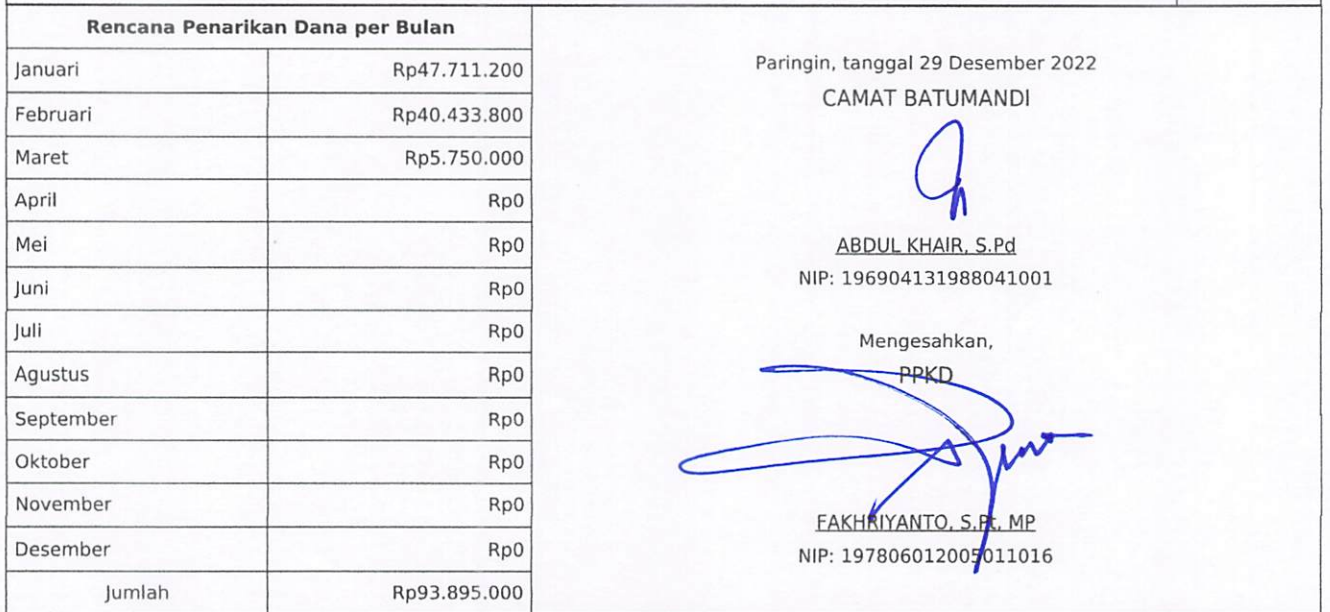 Rencana Penarikan Dana per Bulan
Januari Rp47.711.200
Februari Rp40.433.800
Maret Rp5.750.000
April Rp0
Mei Rp0
Juni Rp0
Juli Rp0
Agustus Rp0
September Rp0
Oktober Rp0
November Rp0
Desember Rp0
Jumlah Rp93.895.000
Paringin, tanggal 29 Desember 2022
CAMAT BATUMANDI
ABDUL KHAIR, S.Pd
NIP: 196904131988041001
Mengesahkan,
PPKD
FAKHRIYANTO, S.Pt, MP
NIP: 197806012005011016